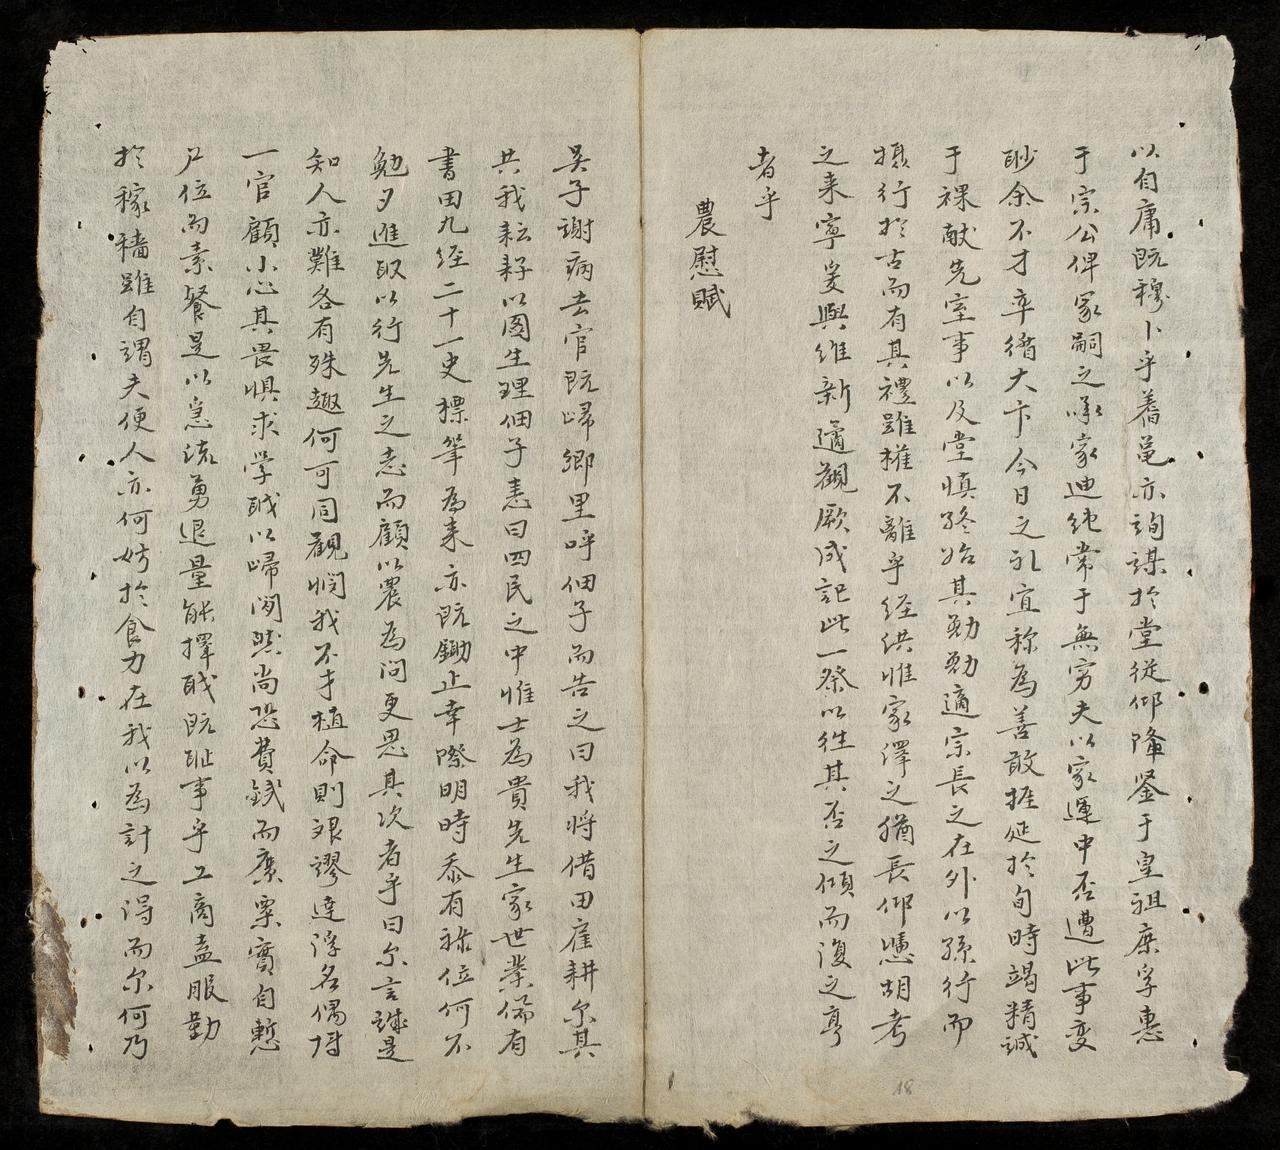 以自庸既穆卜乎蓍黽亦詢謀於堂從仰隆鉴于皇祖庶孚惠
于宗公俾冢嗣之承家迪純常于無窮夫以家運中否遭此事变
眇余不才卒循大卞今日之礼宜称為善敢推延於旬時竭精誠
于祼献先室事以及堂慎終始其勤勤適宗長之在外以孫行而
摄行於古而有其禮雖權不離乎経供惟家澤之猶長仰憑胡考
之来寧爰與維新遹觀厥成記此一祭以徃其否之傾而復之亨
者乎
農慰賦
吴子謝病去官既歸鄉里呼佃子而告之曰我将借田雇耕尔其
共我耘耔以圖生理佃子恚曰四民之中惟士為貴先生家世業儒有
書田九経二十一史標筆為耒亦既鋤止幸際明時忝有祿位何不
勉夕進取以行先生之志而顧以農為问更思其次者乎曰尔言誠是
知人亦難各有殊趣何可同觀惘我不才植命則艰謬達浮名偶忝
一官顧小心其畏惧求学戝以歸閑然尚恐費錢而廪粟實自慙
尸位而素餐是以急流勇退量能擇戝既耻事乎工商盍服勤
於稼穡雖自謂夫便人亦何妨於食力在我以為計之得而尔何乃
18